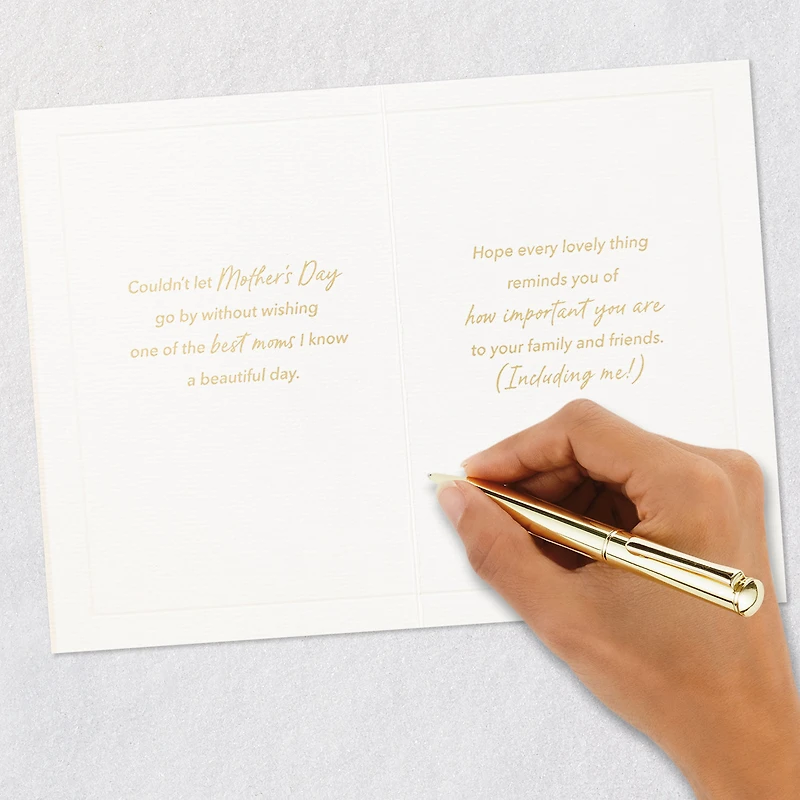 Couldn't let Mother's Day
go by without wishing
one of the best moms I know
a beautiful day.
Hope every lovely thing
reminds you of
how important you are
to your family and friends.
(Including me!)